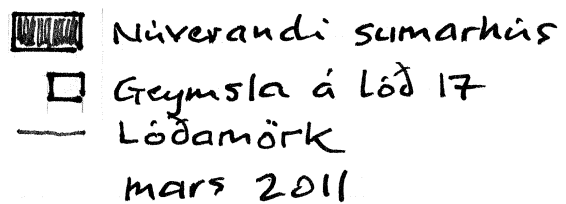 Núverandi sumarhús
Geymsla á lóð 17
Lóðamörk
mars 2011